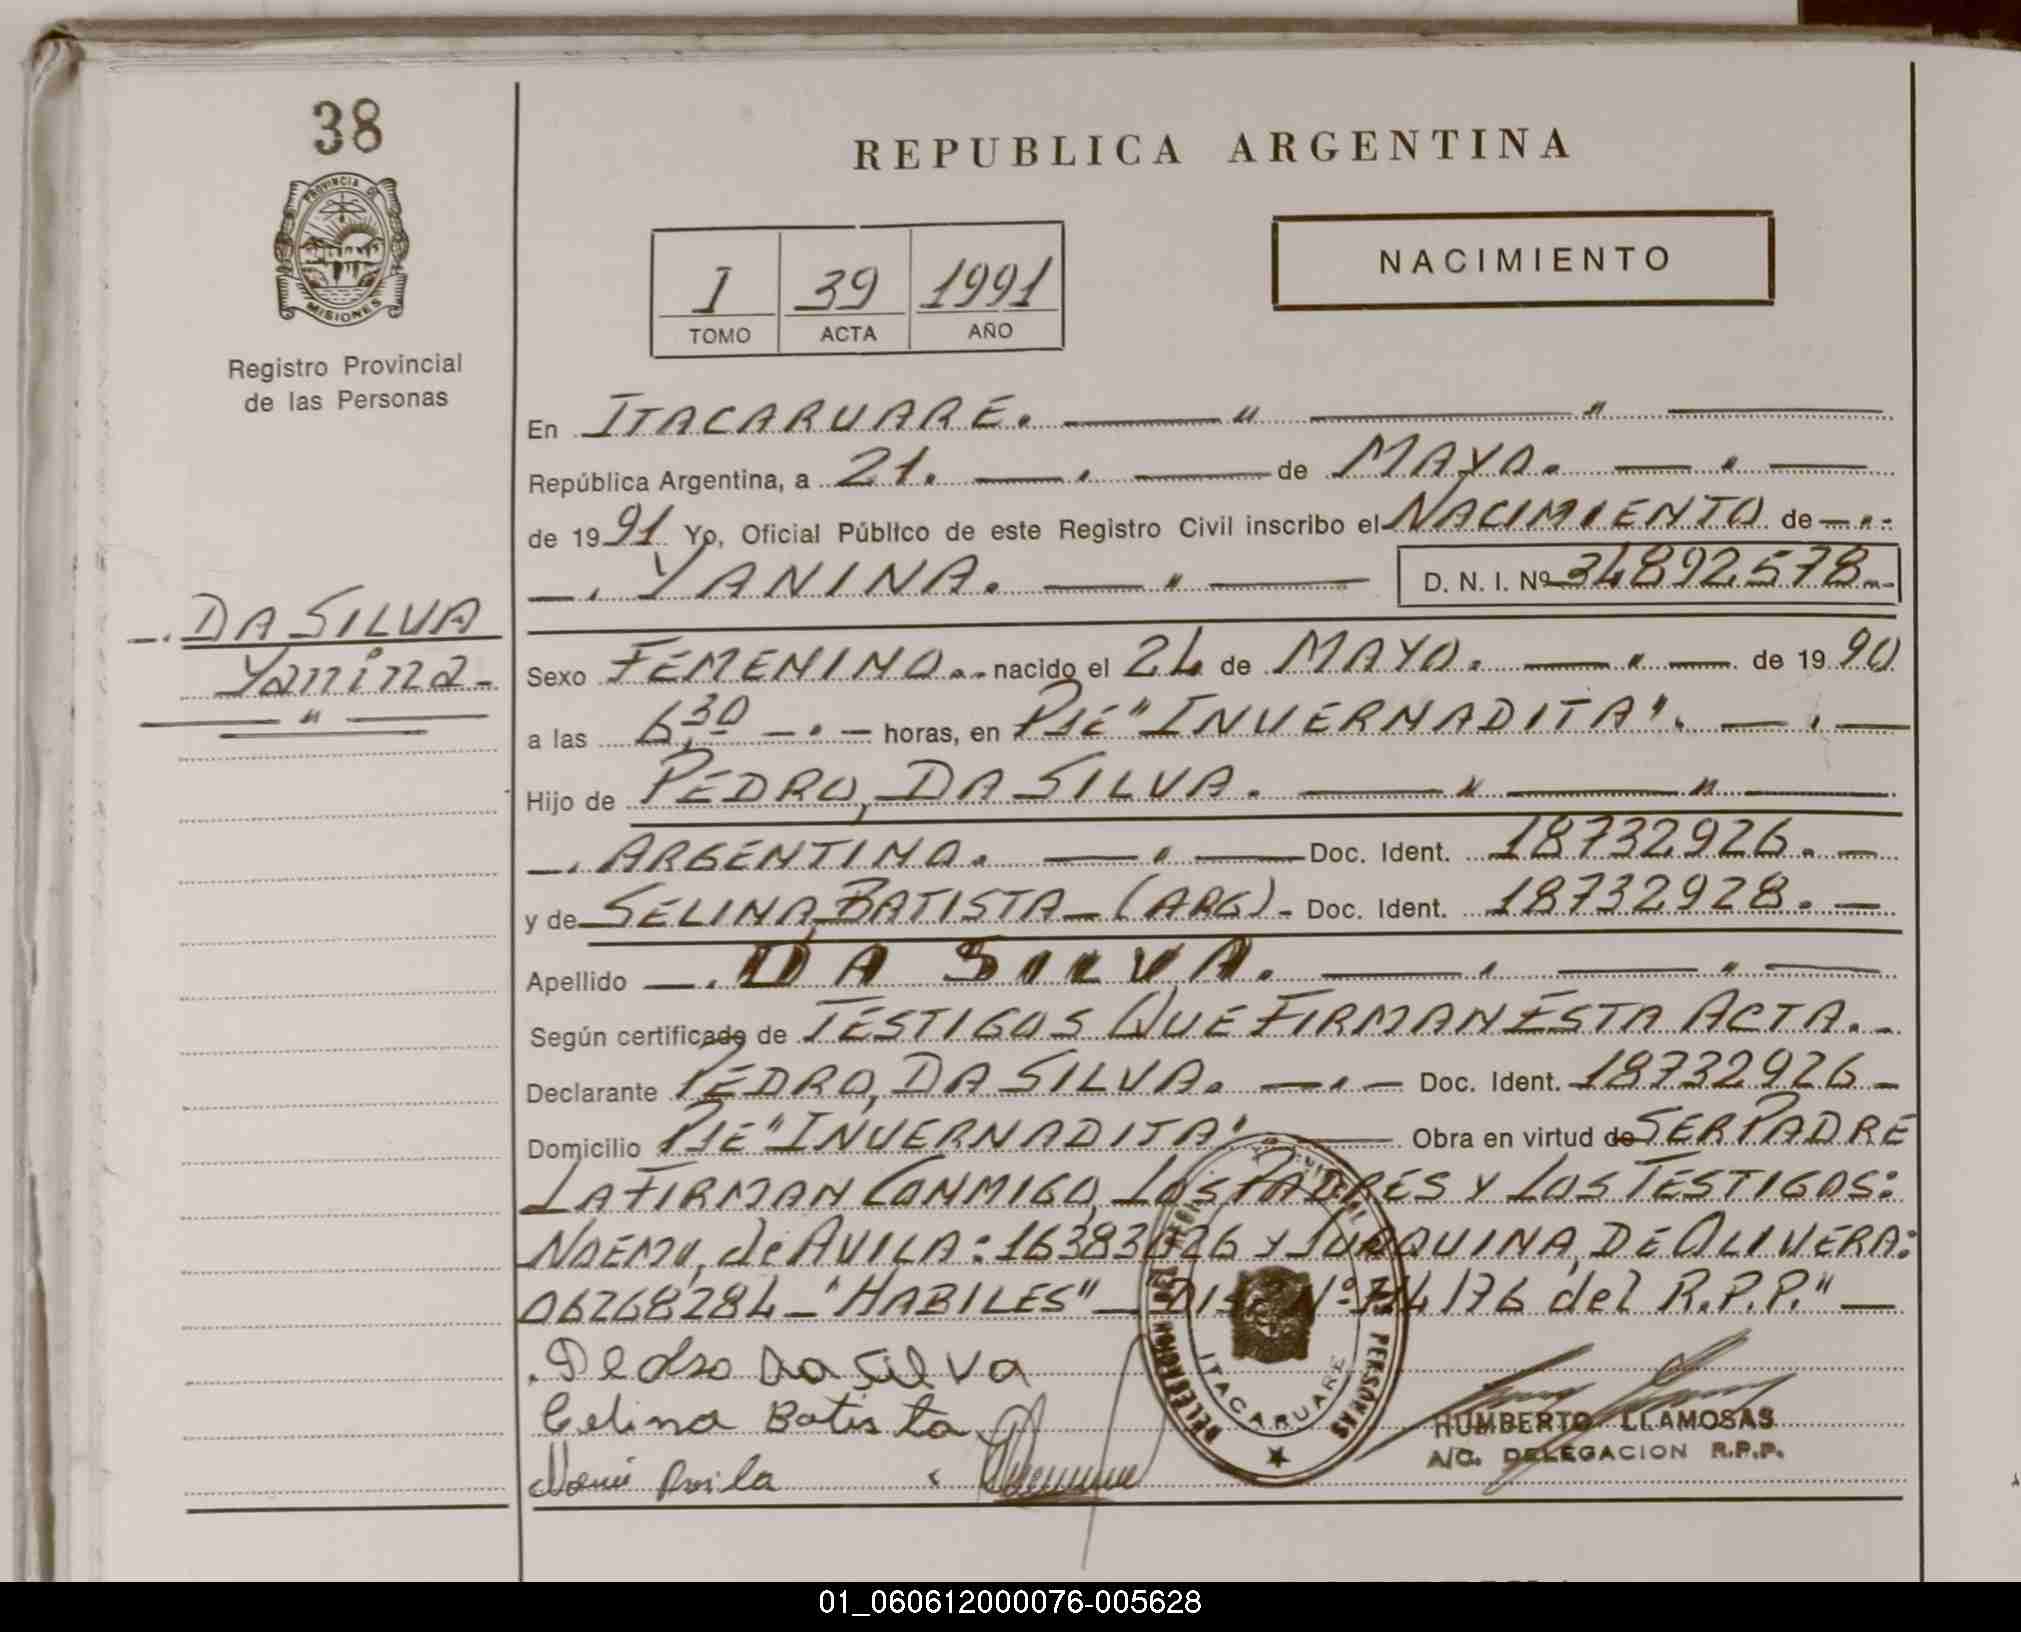 38
PROVINCIA DE
MISIONES
Registro Provincial
de las Personas
REPUBLICA ARGENTINA
I 39 1991
TOMO ACTA AÑO
NACIMIENTO
En ITACARUARE. — " — " —
República Argentina, a 21. — . — de MAYO. — " —
de 1991 Yo, Oficial Público de este Registro Civil inscribo el NACIMIENTO de — " -
—. YANINA. — " — D. N. I. Nº 34892578.-
—. DA SILVA
Yanina -
— " —
Sexo FEMENINO.. nacido el 24 de MAYO. — " — de 1990
a las 6,30 — . — horas, en PJE "INVERNADITA". — . —
Hijo de PEDRO, DA SILVA. — " — " —
—. ARGENTINO. — " — Doc. Ident. 18732926. —
y de SELINA, BATISTA — (ARG) - Doc. Ident. 18732928. —
Apellido —. DA SILVA. — " — " —
Según certificado de TESTIGOS QUE FIRMAN ESTA ACTA. -
Declarante PEDRO, DA SILVA. — . — Doc. Ident. 18732926 —
Domicilio PJE "INVERNADITA" — Obra en virtud de SER PADRE
LA FIRMAN CONMIGO, LOS PADRES Y LOS TESTIGOS:
NOEMI, de AVILA: 16383026 Y JUAQUINA, DE OLIVERA:
06268284 — "HABILES" — DIS. Nº 714/76 del R.P.P." —
Pedro Da Silva
Celina Batista
Noemi Avila
DELEGACION DEL REGISTRO PROVINCIAL DE LAS PERSONAS
ITACARUARE
HUMBERTO LLAMOSAS
A/C. DELEGACION R.P.P.
01_060612000076-005628